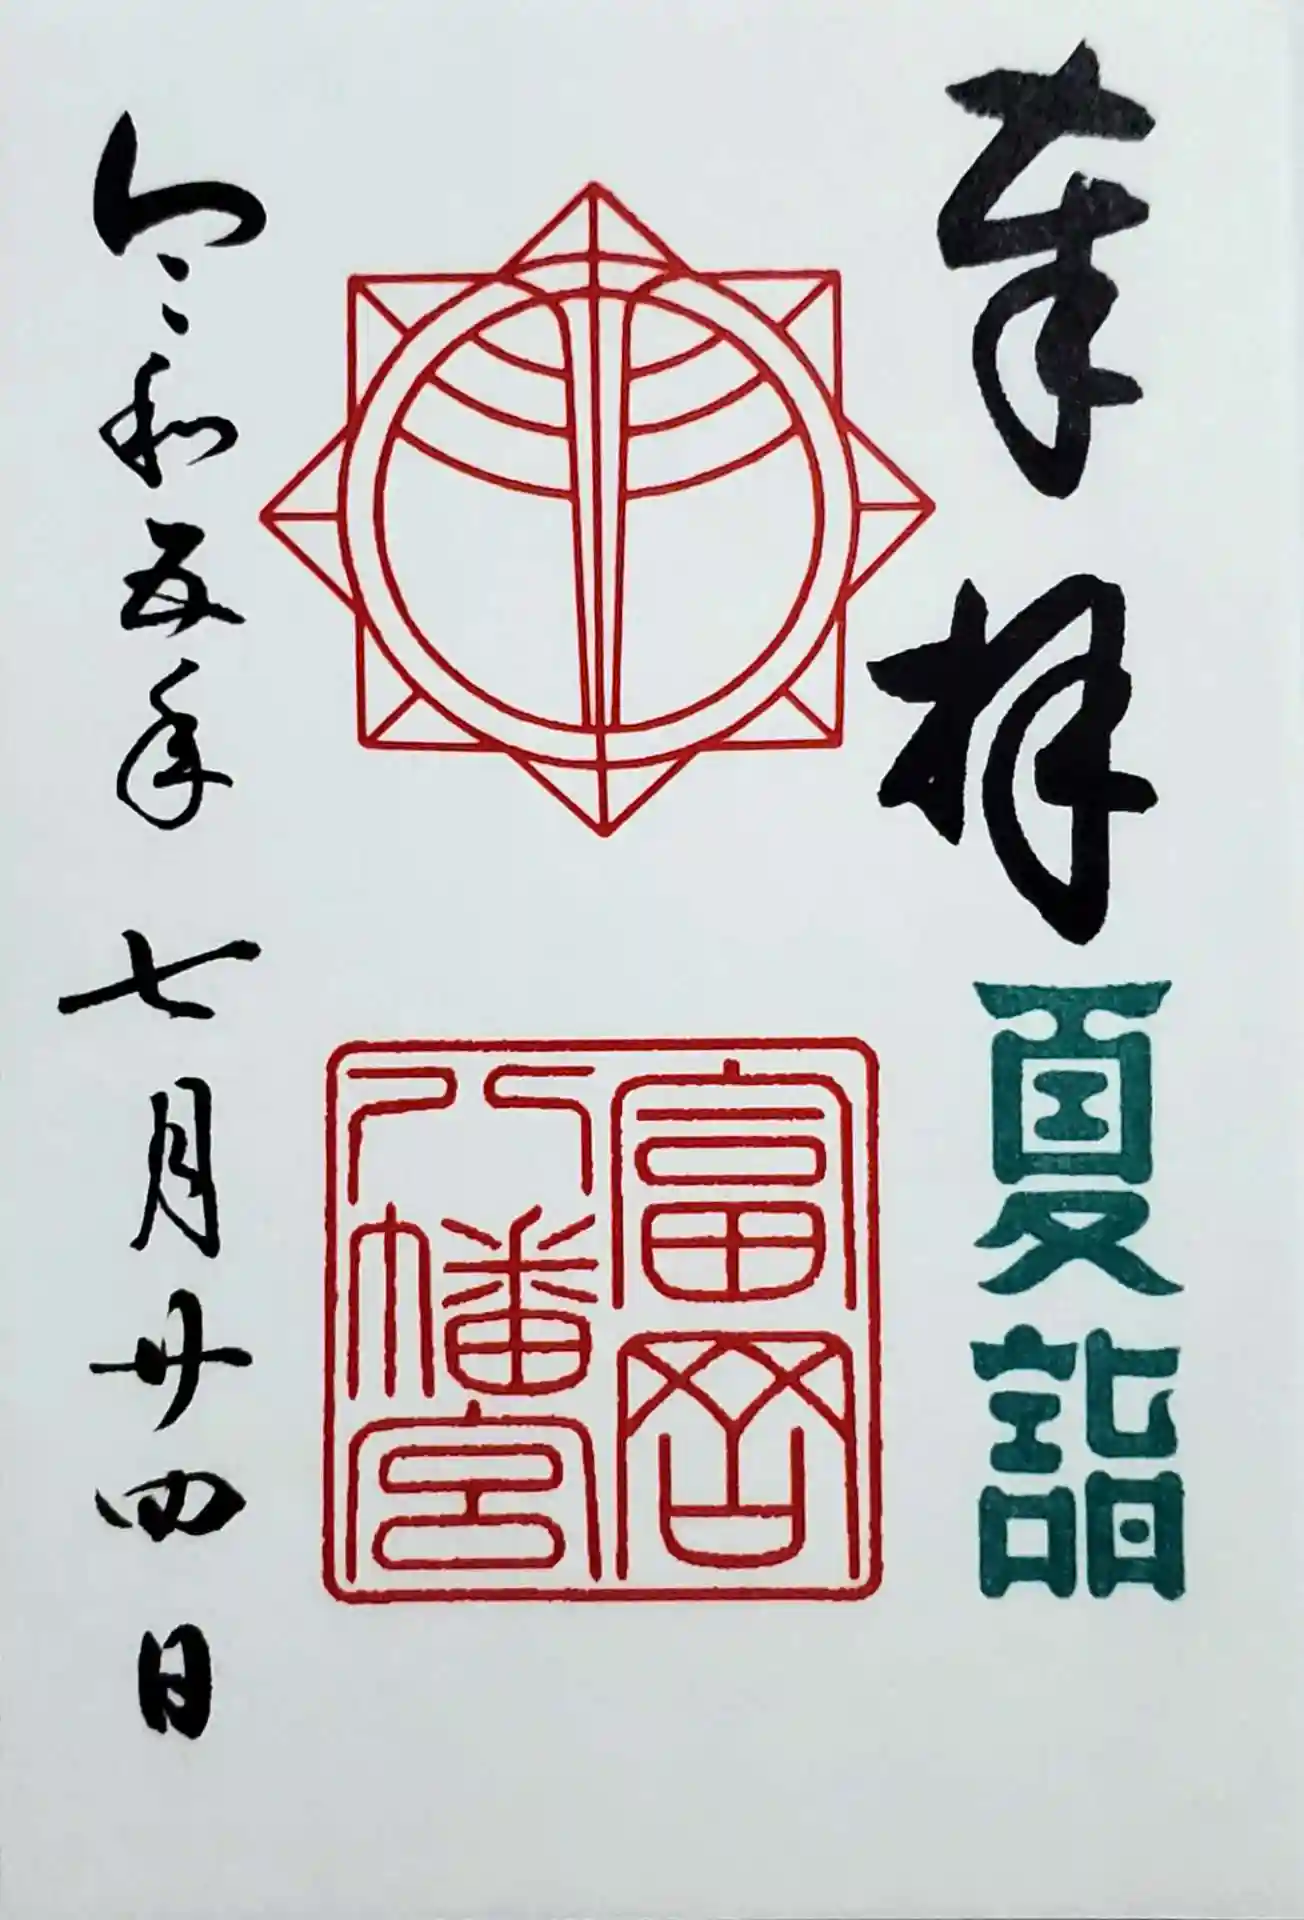 奉拝
夏詣
富岡
八幡宮
令和五年七月廿四日